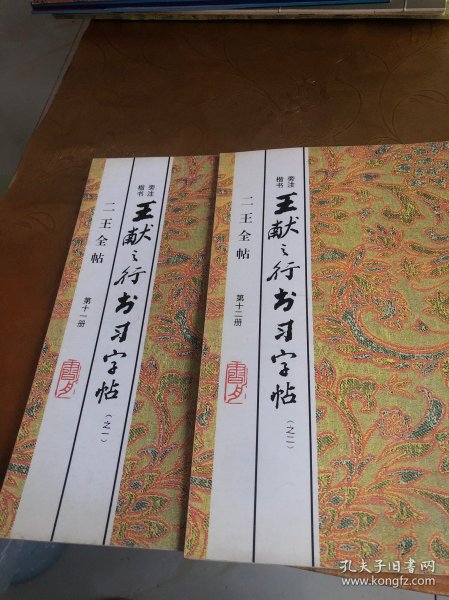 楷书
旁注
王献之行书习字帖
(之一)
二王全帖
第十一册
楷书
旁注
王献之行书习字帖
(之二)
二王全帖
第十二册
孔夫子旧书网
www.kongfz.com